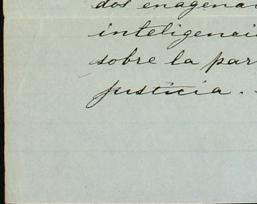 dos enagena
inteligenci
sobre la par
justicia.